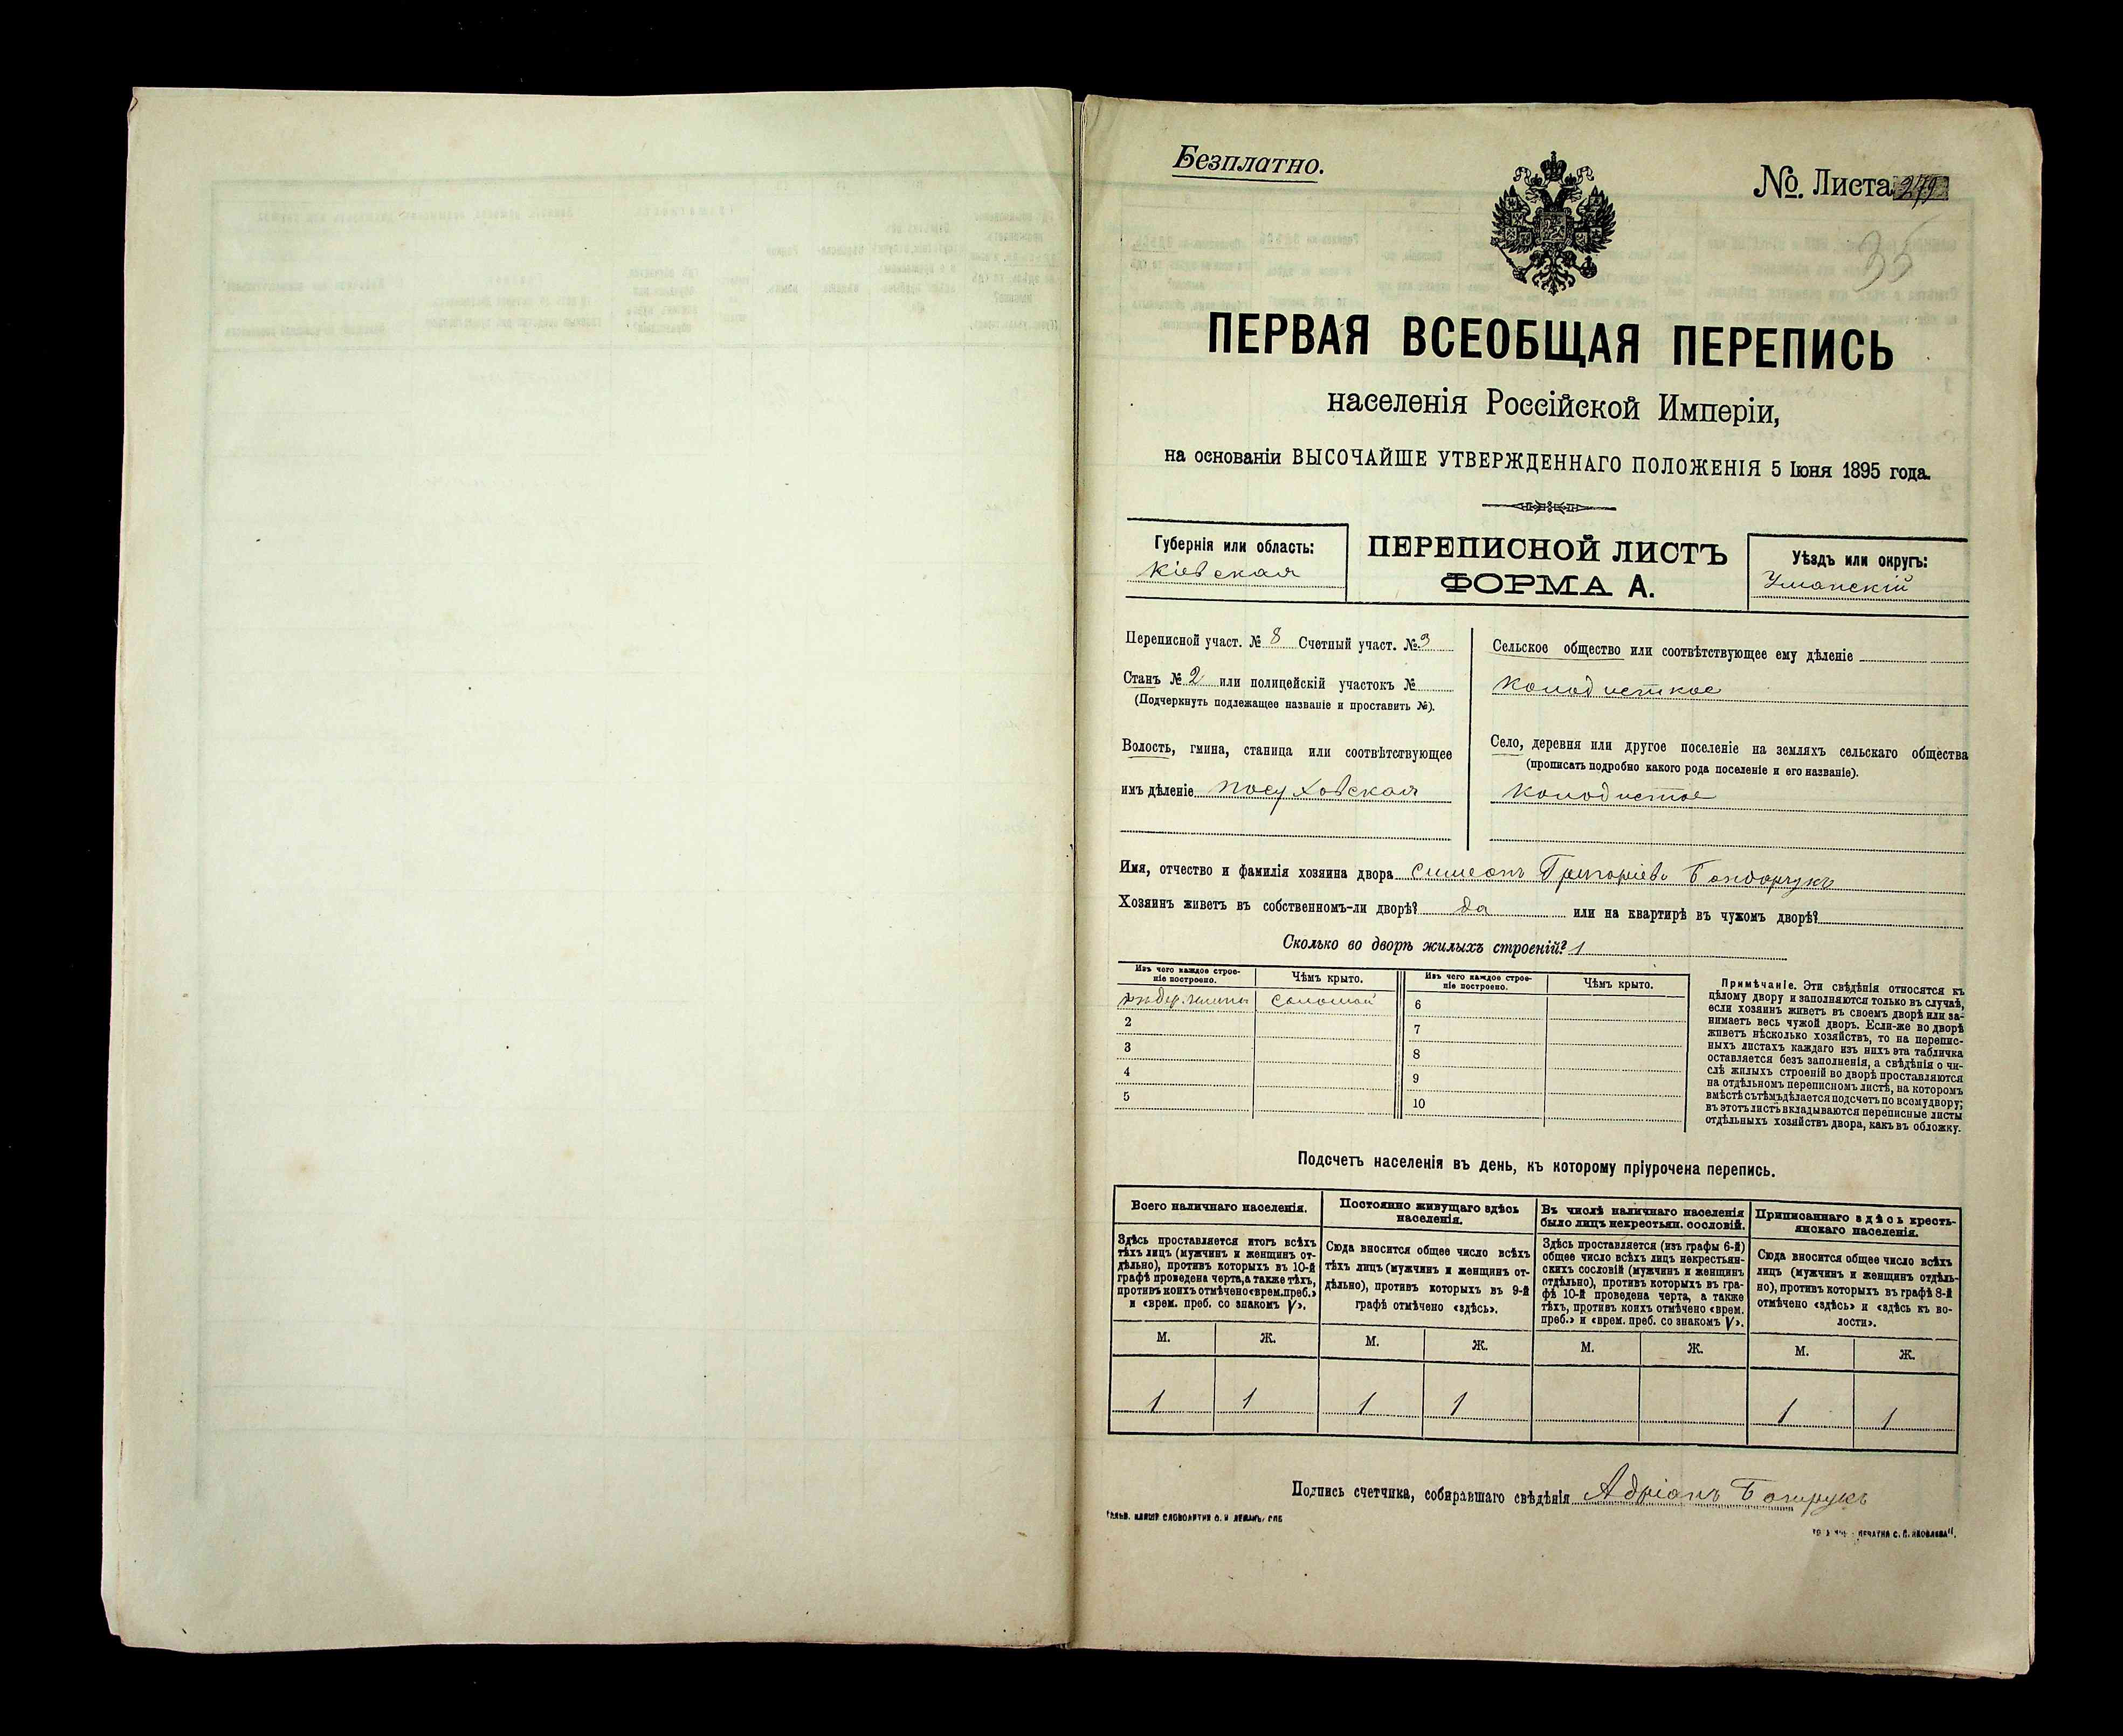 Безплатно.
№. Листа 249
35
ПЕРВАЯ ВСЕОБЩАЯ ПЕРЕПИСЬ
населенія Россійской Имперіи,
на основаніи ВЫСОЧАЙШЕ УТВЕРЖДЕННАГО ПОЛОЖЕНІЯ 5 Іюня 1895 года.
Губернія или область:
Кіевская
ПЕРЕПИСНОЙ ЛИСТЪ
ФОРМА А.
Уѣздъ или округъ:
Уманскій
Переписной участ. № 8 Счетный участ. № 3
Станъ № 2 или полицейскій участокъ №
(Подчеркнуть подлежащее названіе и проставить №).
Волость, гмина, станица или соотвѣтствующее
имъ дѣленіе Посуховская
Сельское общество или соотвѣтствующее ему дѣленіе
Колодисткое
Село, деревня или другое поселеніе на земляхъ сельскаго общества
(прописать подробно какого рода поселеніе и его названіе).
Колодистое
Имя, отчество и фамилія хозяина двора Симеонъ Григоріевъ Бондарчукъ
Хозяинъ живетъ въ собственномъ-ли дворѣ? да или на квартирѣ въ чужомъ дворѣ?
Сколько во дворѣ жилыхъ строеній? 1
Изъ чего каждое строе-
ніе построено.
Чѣмъ крыто.
Изъ чего каждое строе-
ніе построено.
Чѣмъ крыто.
соломой
6
2
7
3
8
4
9
5
10
Примѣчаніе. Эти свѣдѣнія относятся къ
цѣлому двору и заполняются только въ случаѣ,
если хозяинъ живетъ въ своемъ дворѣ или за-
нимаетъ весь чужой дворъ. Если-же во дворѣ
живетъ нѣсколько хозяйствъ, то на перепис-
ныхъ листахъ каждаго изъ нихъ эта табличка
оставляется безъ заполненія, а свѣдѣнія о чи-
слѣ жилыхъ строеній во дворѣ проставляются
на отдѣльномъ переписномъ листѣ, на которомъ
вмѣстѣ съ тѣмъ дѣлается подсчетъ по всему двору;
въ этотъ листъ вкладываются переписные листы
отдѣльныхъ хозяйствъ двора, какъ въ обложку.
Подсчетъ населенія въ день, къ которому пріурочена перепись.
Всего наличнаго населенія.
Здѣсь проставляется итогъ всѣхъ
тѣхъ лицъ (мужчинъ и женщинъ от-
дѣльно), противъ которыхъ въ 10-й
графѣ проведена черта, а также тѣхъ,
противъ коихъ отмѣчено «врем. преб.»
и «врем. преб. со знакомъ V».
Постоянно живущаго здѣсь
населенія.
Сюда вносится общее число всѣхъ
тѣхъ лицъ (мужчинъ и женщинъ от-
дѣльно), противъ которыхъ въ 9-й
графѣ отмѣчено «здѣсь».
Въ числѣ наличнаго населенія
было лицъ некрестьян. сословій.
Здѣсь проставляется (изъ графы 6-й)
общее число всѣхъ лицъ некрестьян-
скихъ сословій (мужчинъ и женщинъ
отдѣльно), противъ которыхъ въ гра-
фѣ 10-й проведена черта, а также
тѣхъ, противъ коихъ отмѣчено «врем.
преб.» и «врем. преб. со знакомъ V».
Приписаннаго здѣсь кресть-
янскаго населенія.
Сюда вносится общее число всѣхъ
лицъ (мужчинъ и женщинъ отдѣль-
но), противъ которыхъ въ графѣ 8-й
отмѣчено «здѣсь» и «здѣсь къ во-
лости».
М. Ж. М. Ж. М. Ж. М. Ж.
1 1 1 1 1 1
Подпись счетчика, собиравшаго свѣдѣнія Адріанъ
ПЕЧАТНЯ С. П. ЯКОВЛЕВА".